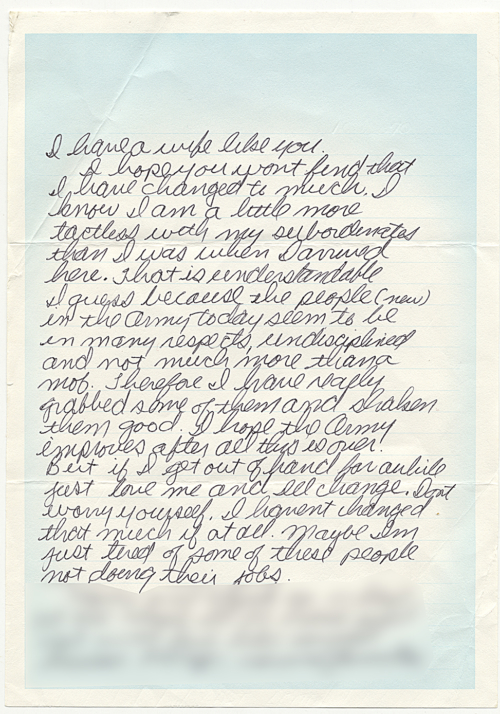 I have a wife like you.
I hope you wont find that
I have changed to much. I
know I am a little more
tactless with my subordinates
than I was when I arrived
here. That is understandable
I guess because the people (new)
in the Army today seem to be
in many respects, undisciplined
and not much more than a
mob. Therefore I have really
grabbed some of them and shaken
them good. I hope the Army
improves after all this is over.
But if I get out of hand for awhile
just love me and ill change. Dont
worry yourself. I havent changed
that much if at all. Maybe I'm
just tired of some of these people
not doing their jobs.